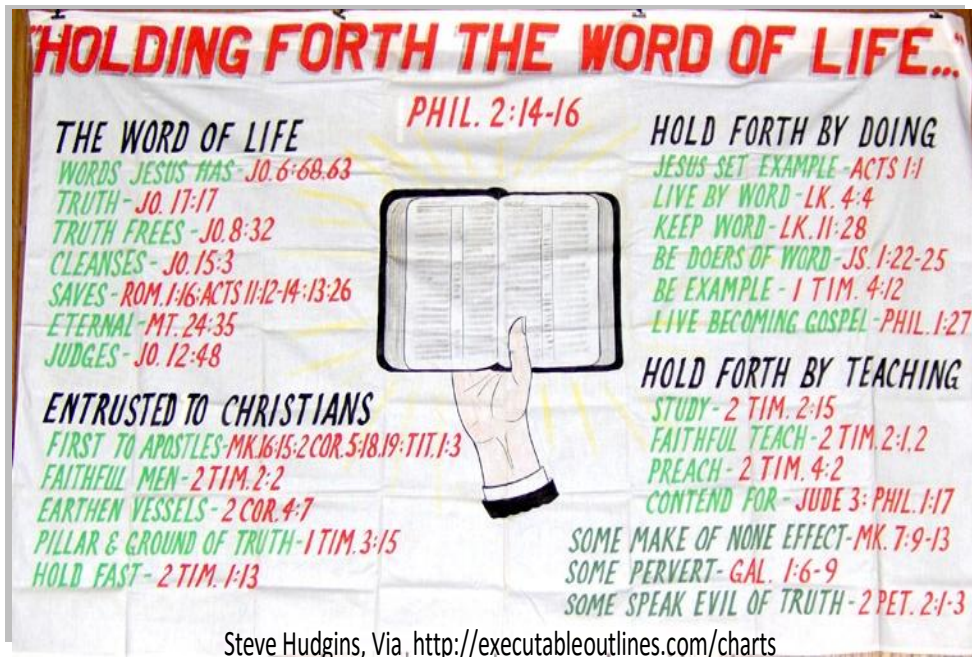 "HOLDING FORTH THE WORD OF LIFE..."
PHIL. 2:14-16
THE WORD OF LIFE
WORDS JESUS HAS - JO. 6:68,63
TRUTH - JO. 17:17
TRUTH FREES - JO. 8:32
CLEANSES - JO. 15:3
SAVES - ROM. 1:16; ACTS 11:12-14; 13:26
ETERNAL - MT. 24:35
JUDGES - JO. 12:48
ENTRUSTED TO CHRISTIANS
FIRST TO APOSTLES - MK. 16:15; 2 COR. 5:18,19; TIT. 1:3
FAITHFUL MEN - 2 TIM. 2:2
EARTHEN VESSELS - 2 COR. 4:7
PILLAR & GROUND OF TRUTH - 1 TIM. 3:15
HOLD FAST - 2 TIM. 1:13
HOLD FORTH BY DOING
JESUS SET EXAMPLE - ACTS 1:1
LIVE BY WORD - LK. 4:4
KEEP WORD - LK. 11:28
BE DOERS OF WORD - JS. 1:22-25
BE EXAMPLE - 1 TIM. 4:12
LIVE BECOMING GOSPEL - PHIL. 1:27
HOLD FORTH BY TEACHING
STUDY - 2 TIM. 2:15
FAITHFUL TEACH - 2 TIM. 2:1,2
PREACH - 2 TIM. 4:2
CONTEND FOR - JUDE 3; PHIL. 1:17
SOME MAKE OF NONE EFFECT - MK. 7:9-13
SOME PERVERT - GAL. 1:6-9
SOME SPEAK EVIL OF TRUTH - 2 PET. 2:1-3
Steve Hudgins, Via http://executableoutlines.com/charts